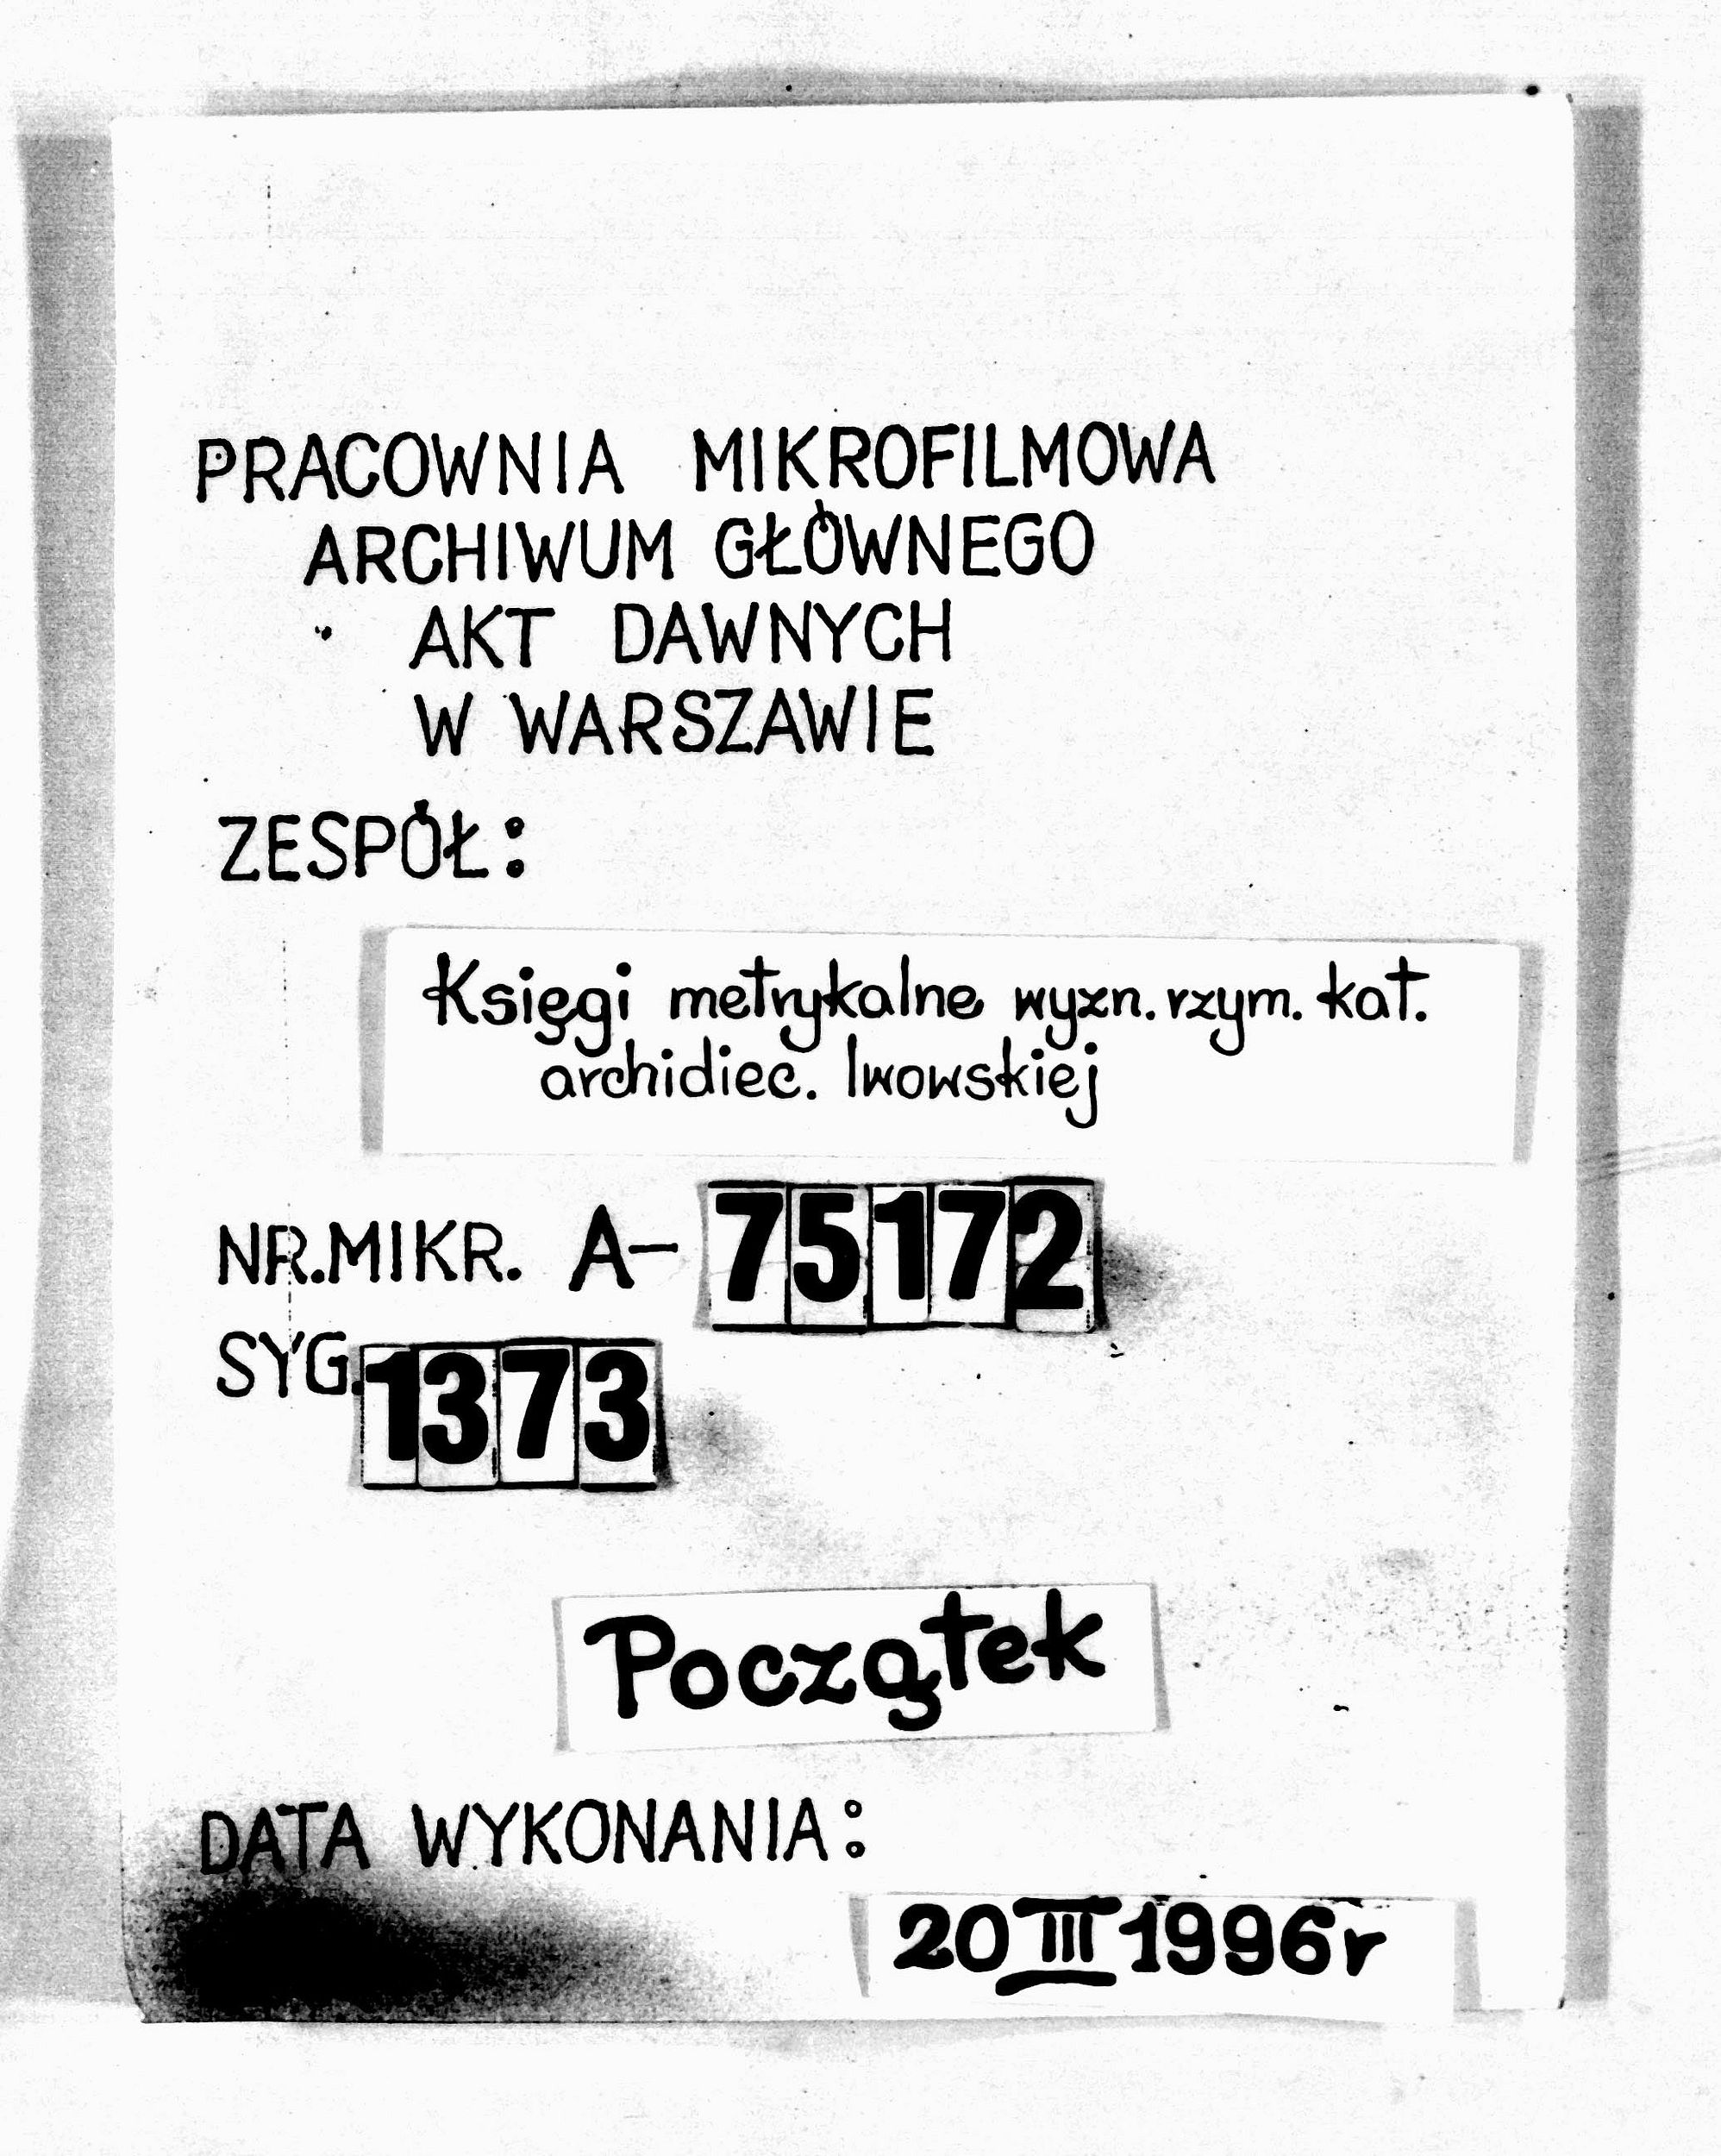 PRACOWNIA MIKROFILMOWA
ARCHIWUM GŁÓWNEGO
AKT DAWNYCH
W WARSZAWIE
ZESPÓŁ:
Księgi metrykalne wyzn. rzym. kat.
archidiec. lwowskiej
NR.MIKR. A- 75172
SYG. 1373
Początek
DATA WYKONANIA:
20 III 1996r